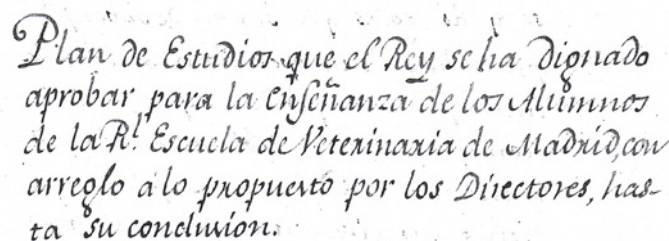 Plan de Estudios que el Rey se ha dignado
aprobar para la Enseñanza de los Alumnos
de la Rl. Escuela de Veterinaria de Madrid, con
arreglo a lo propuesto por los Directores, has-
ta su conclusion.